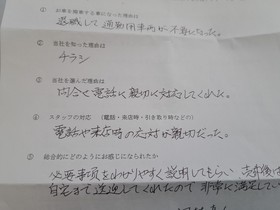 ① お車を売却する事になった理由は
退職して通勤用車両が不要になった。
② 当社を知った理由は
チラシ
③ 当社を選んだ理由は
問合せ電話に親切に対応してくれた。
④ スタッフの対応（電話・来店時・引き取り時などの）
電話や来店時の応対が親切だった。
⑤ 総合的にどのようにお感じになられたか
必要事項を分かりやすく説明してもらい 売却後は
自宅まで送迎してくれたので非常に満足してい